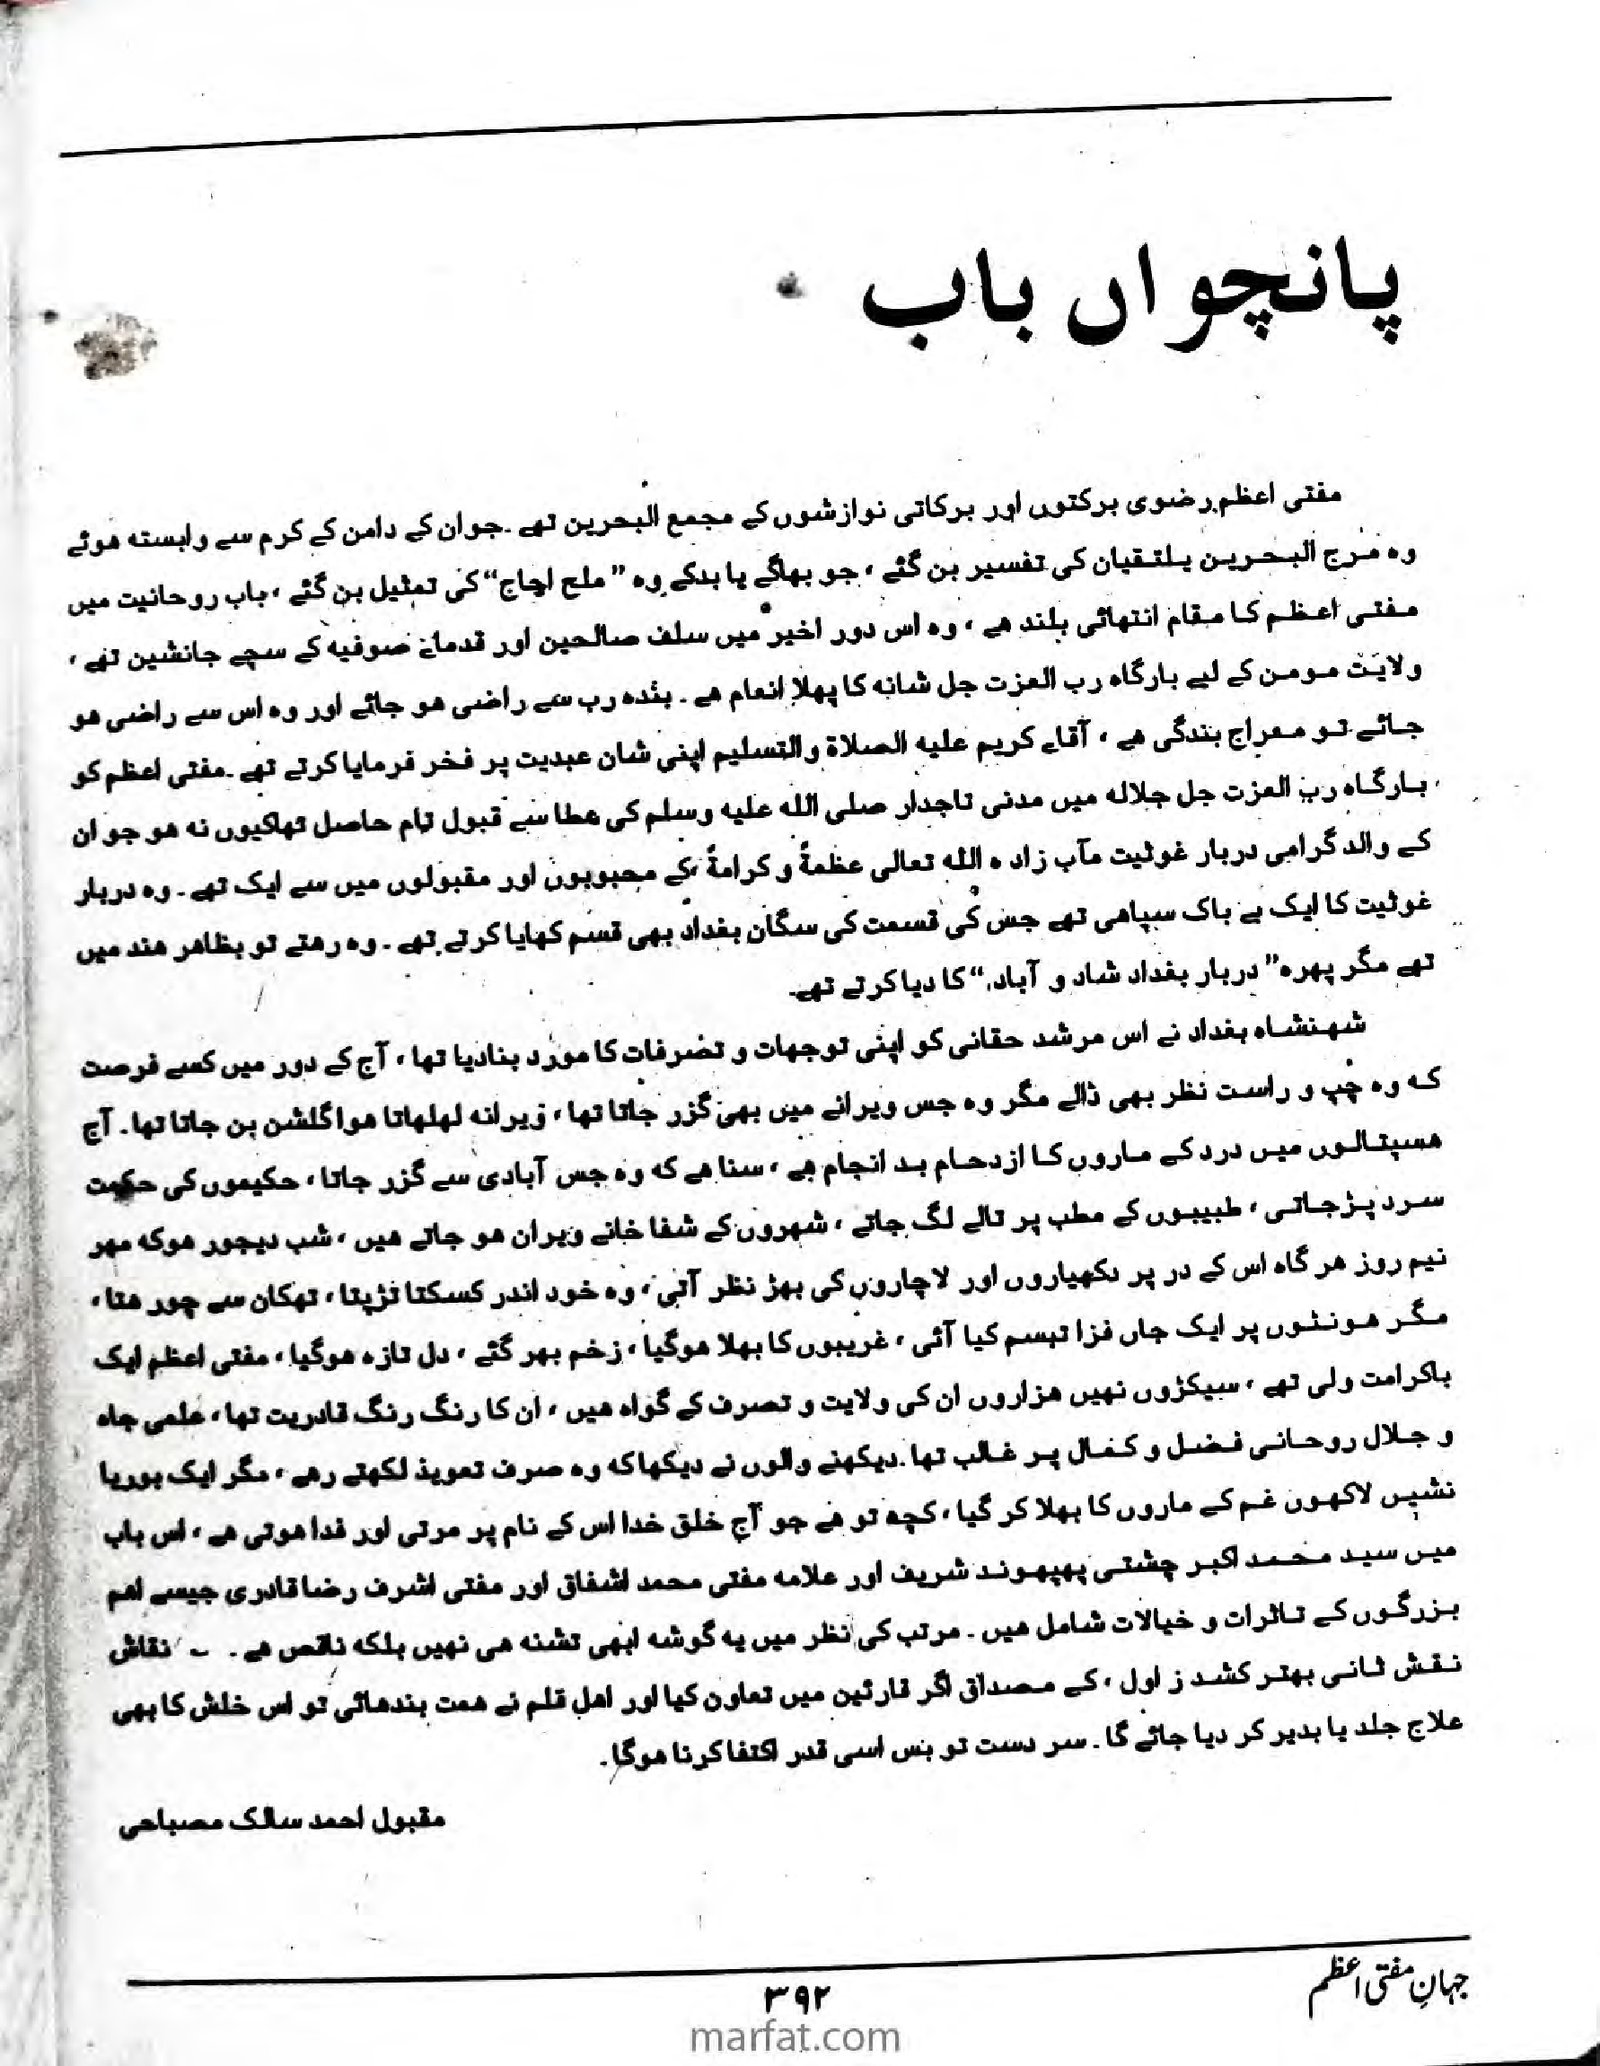 پانچواں باب
مفتی اعظم رضوی برکتوں اور برکاتی نوازشوں کے مجمع البحرین تھے۔ جو ان کے دامن کے کرم سے وابستہ ہوئے
وہ مرج البحرین یلتقیان کی تفسیر بن گئے، جو بھاگے یا بدکے وہ ”ملح اجاج“ کی تمثیل بن گئے، باب روحانیت میں
مفتی اعظم کا مقام انتہائی بلند ہے، وہ اس دور اخیر میں سلف صالحین اور قدمائے صوفیہ کے سچے جانشین تھے،
ولایت مومن کے لیے بارگاہ رب العزت جل شانہ کا پہلا انعام ہے۔ بندہ رب سے راضی ہو جائے اور وہ اس سے راضی ہو
جائے تو معراج بندگی ہے، آقاے کریم علیہ الصلاۃ والتسلیم اپنی شان عبدیت پر فخر فرمایا کرتے تھے۔ مفتی اعظم کو
بارگاہ رب العزت جل جلالہ میں مدنی تاجدار صلی اللہ علیہ وسلم کی عطا سے قبول تام حاصل تھا کیوں نہ ہو جو ان
کے والد گرامی دربار غوثیت مآب زادہ اللہ تعالی عظمةً و کرامةً کے محبوبوں اور مقبولوں میں سے ایک تھے۔ وہ دربار
غوثیت کا ایک بے باک سپاہی تھے جس کی قسمت کی سگان بغداد بھی قسم کھایا کرتے تھے۔ وہ رہتے تو بظاہر ہند میں
تھے مگر پہرہ ”دربار بغداد شاد و آباد“ کا دیا کرتے تھے۔
شہنشاہ بغداد نے اس مرشد حقانی کو اپنی توجہات و تصرفات کا مورد بنا دیا تھا، آج کے دور میں کسے فرصت
کہ وہ چپ و راست نظر بھی ڈالے مگر وہ جس ویرانے میں بھی گزر جاتا تھا، ویرانہ لہلہاتا ہوا گلشن بن جاتا تھا۔ آج
ہسپتالوں میں درد کے ماروں کا ازدحام بد انجام ہے، سنا ہے کہ وہ جس آبادی سے گزر جاتا، حکیموں کی حکمت
سرد پڑجاتی، طبیبوں کے مطب پر تالے لگ جاتے، شہروں کے شفا خانے ویران ہو جاتے ہیں، شب دیجور ہو کہ مہر
نیم روز ہر گاہ اس کے در پر دکھیاروں اور لاچاروں کی بھڑ نظر آتی، وہ خود اندر کسکتا تڑپتا، تھکان سے چور ہتا،
مگر ہونٹوں پر ایک جاں فزا تبسم کیا آئی، غریبوں کا بھلا ہوگیا، زخم بھر گئے، دل تازہ ہوگیا، مفتی اعظم ایک
باکرامت ولی تھے، سیکڑوں نہیں ہزاروں ان کی ولایت و تصرف کے گواہ ہیں، ان کا رنگ رنگ قادریت تھا، علمی جاہ
و جلال روحانی فضل و کمال پر غالب تھا۔ دیکھنے والوں نے دیکھا کہ وہ صرف تعویذ لکھتے رہے، مگر ایک بوریا
نشیں لاکھوں غم کے ماروں کا بھلا کر گیا، کچھ تو ہے جو آج خلق خدا اس کے نام پر مرتی اور فدا ہوتی ہے، اس باب
میں سید محمد اکبر چشتی پھپھوند شریف اور علامہ مفتی محمد اشفاق اور مفتی اشرف رضا قادری جیسے اہم
بزرگوں کے تاثرات و خیالات شامل ہیں۔ مرتب کی نظر میں یہ گوشہ ابھی تشنہ ہی نہیں بلکہ ناقص ہے۔ ؎ نقاش
نقش ثانی بہتر کشد ز اول، کے مصداق اگر قارئین میں تعاون کیا اور اہل قلم نے ہمت بندھائی تو اس خلش کا بھی
علاج جلد یا بدیر کر دیا جائے گا۔ سر دست تو بس اسی قدر اکتفا کرنا ہوگا۔
مقبول احمد سالک مصباحی
جہانِ مفتی اعظم
۳۹۲
marfat.com